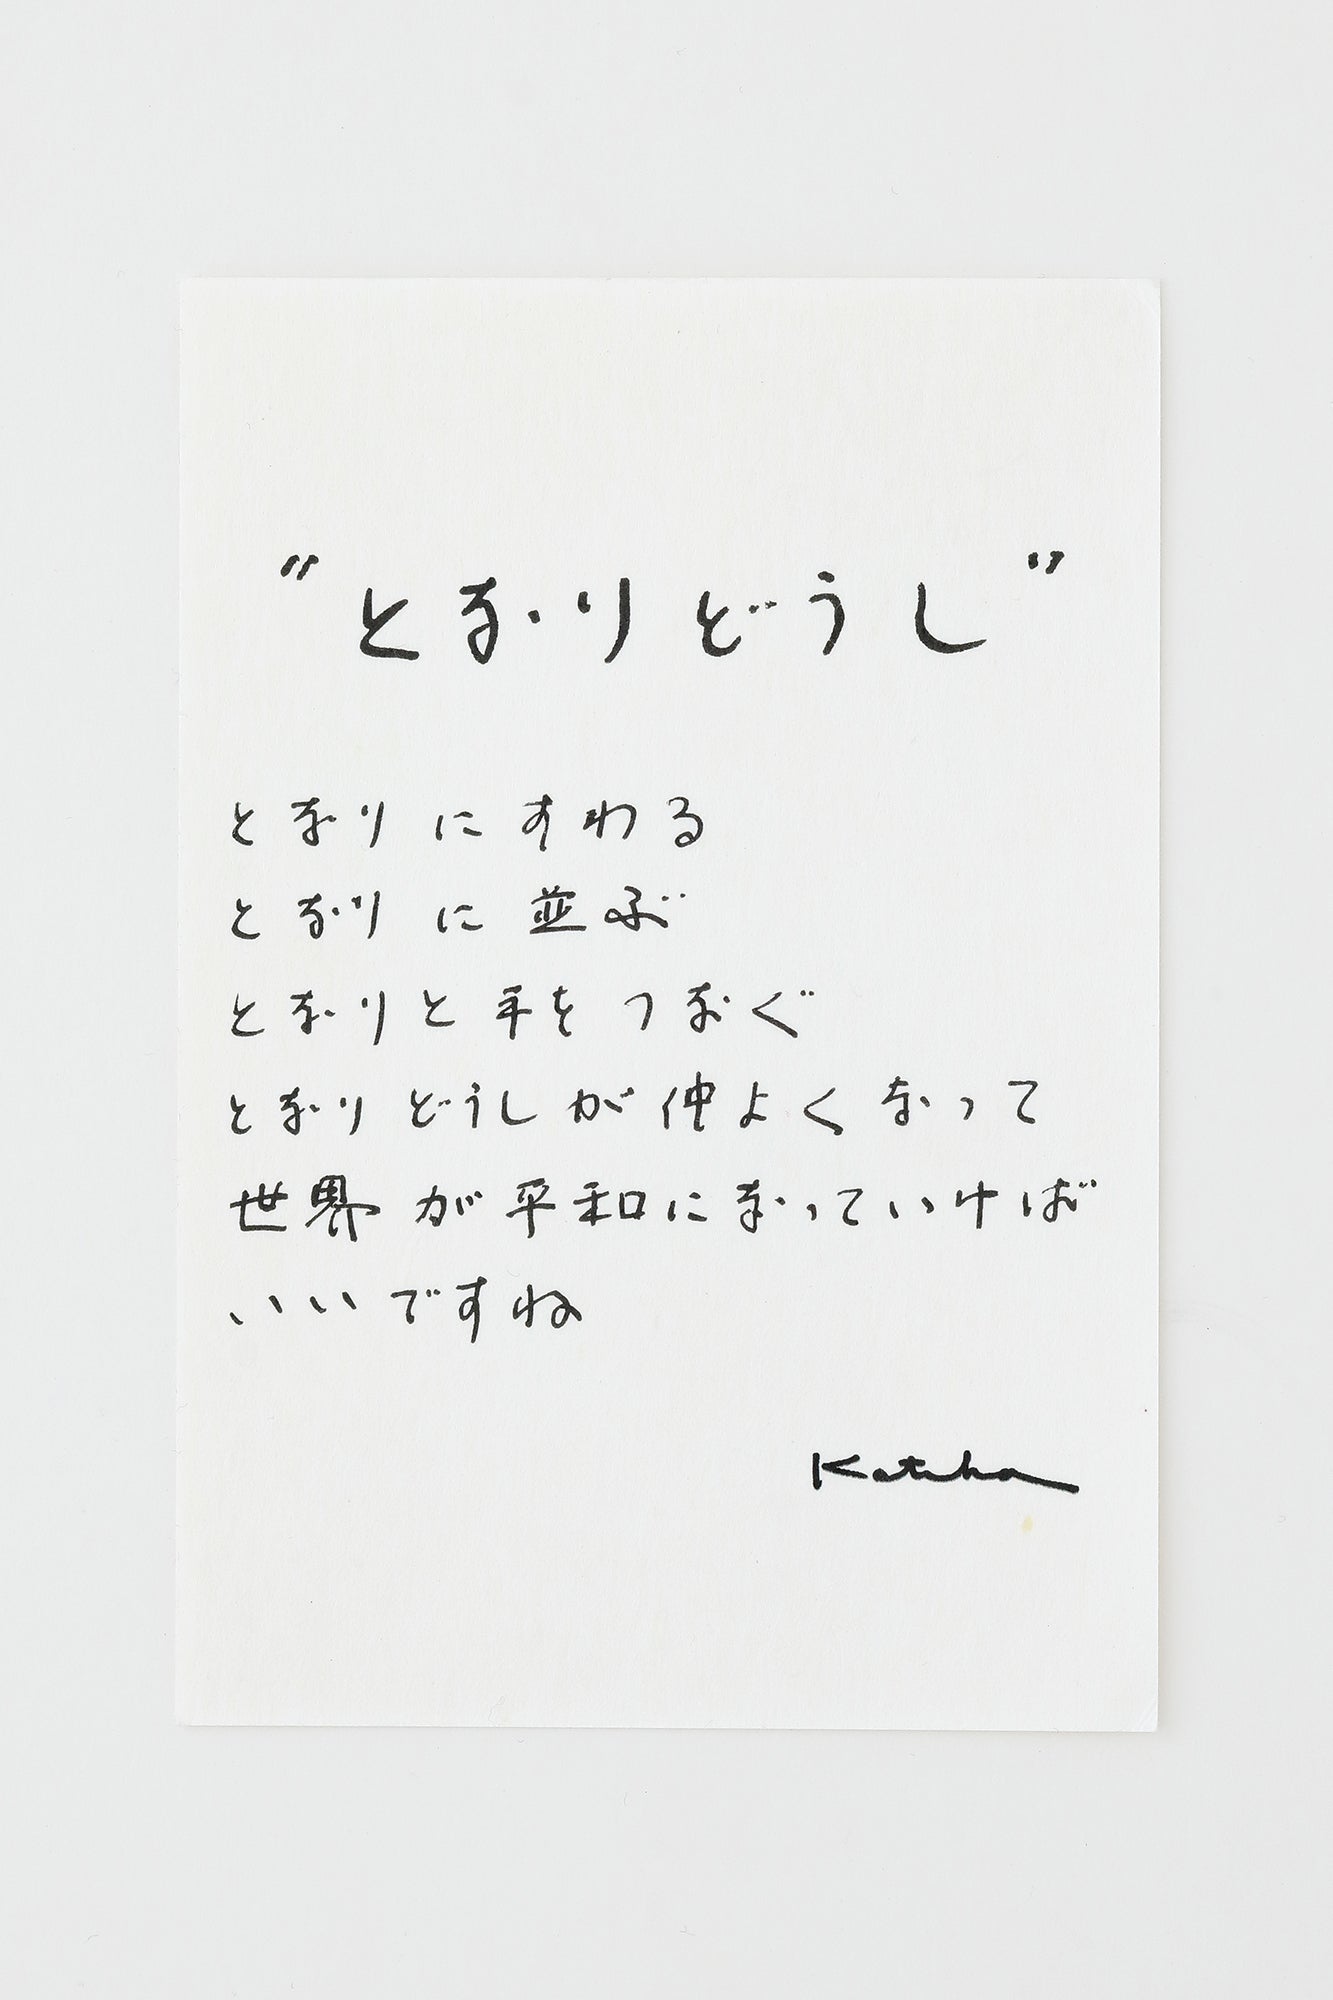 "となりどうし"
となりにすわる
となりに並ぶ
となりと手をつなぐ
となりどうしが仲よくなって
世界が平和になっていけば
いいですね